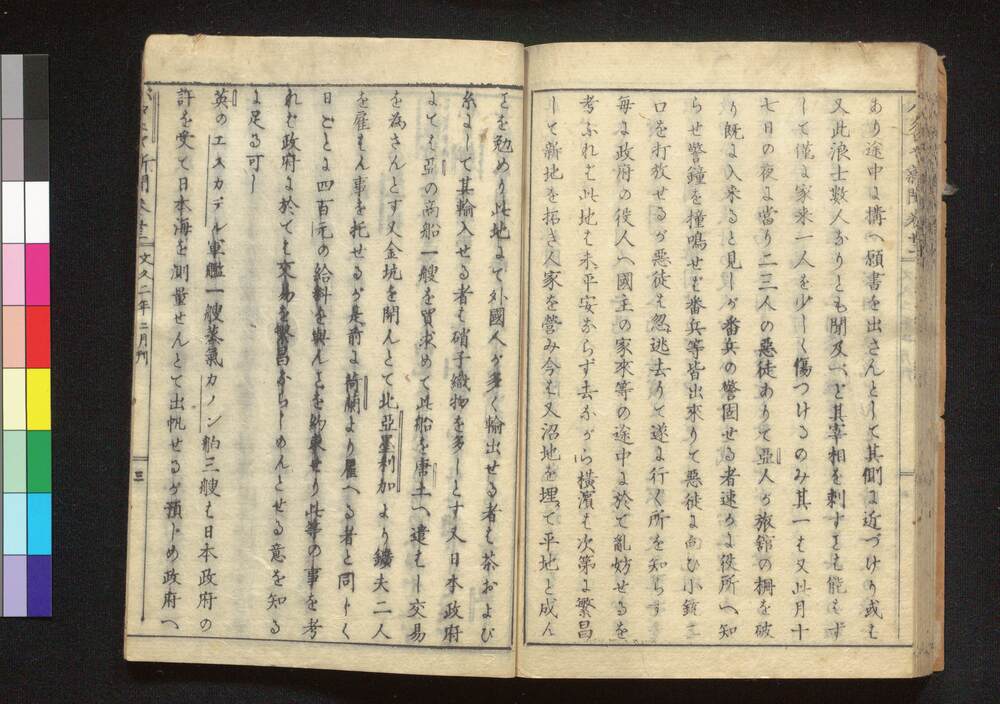 あり途中に搆へ願書を出さんとして其側に近づけり或は
又此浪士数人なりとも聞及べど其宰相を刺すことも能はず
して僅に家来一人を少しく傷つけるのみ其一は又此月十
七日の夜に當り二三人の惡徒ありて亞人が旅舘の柵を破
り既に入来ると見しが番兵の警固せる者速かに役所へ知
らせ警鐘を撞鳴せば番兵等皆出来りて悪徒に向ひ小銃二
口を打放せるが悪徒は忽逃去りて遂に行く所を知らず
毎に政府の役人へ國主の家来等の途中に於て亂妨せるを
考ふれば此地は未平安ならず去ながら横濱は次第に繁昌
して新地を拓き人家を營み今は又沼地を埋て平地と成ん
とを勉めり此地にて外國人が多く輸出せる者は茶および
糸にして其輸入せる者は硝子織物を多しとす又日本政府
にては亞の商船一艘を買求めて此船を唐土へ遣はし交易
を為さんとす又金坑を開んとて北亞墨利加より鑛夫二人
を雇はん事を托せるが是前に荷蘭より雇へる者と同じく
日ごとに四百元の給料を與んとを約束せり此等の事を考
れば政府に於ても交易を繁昌ならしめんとせる意を知る
に足る可し
英のエスカデル軍艦一艘蒸氣カノン舶三艘は日本政府の
許を受て日本海を測量せんとて出帆せるが預じめ政府へ
新聞巻廿二 文久二年二月刊
三